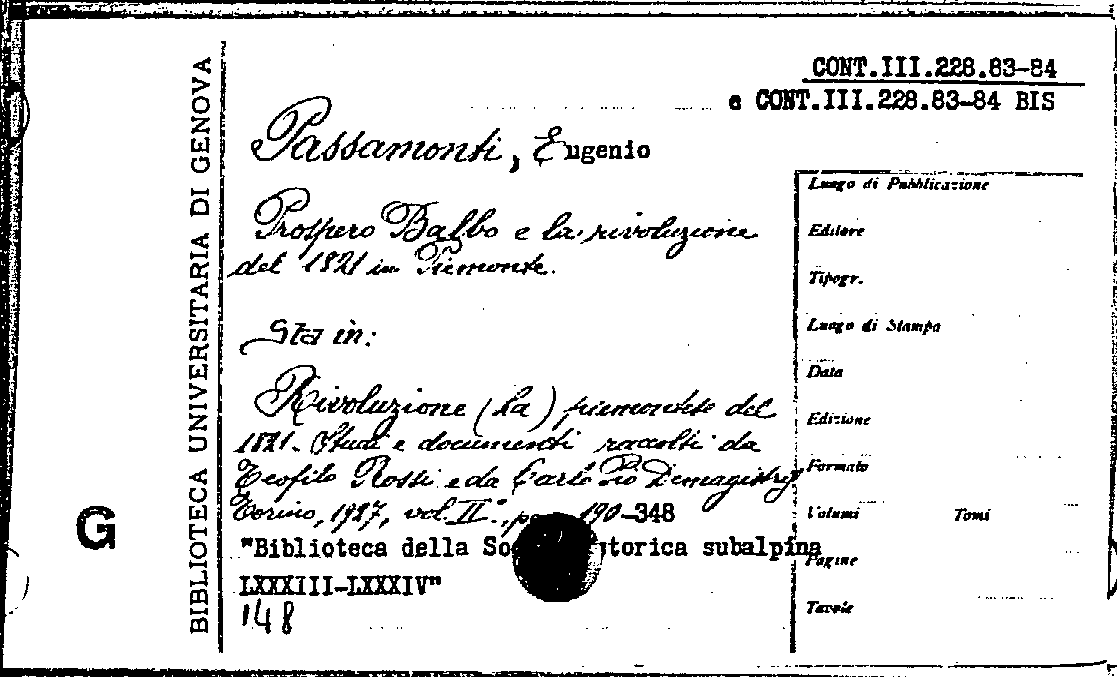 BIBLIOTECA UNIVERSITARIA DI GENOVA
G
CONT.III.228.83-84
e CONT.III.228.83-84 BIS
Passamonti, Eugenio
Prospero Balbo e la rivoluzione
del 1821 in Piemonte.
Sta in:
Rivoluzione (La) piemontese del
1821. Studi e documenti raccolti da
Teofilo Rossi e da Carlo Pio Demagistris
Torino, 1927, vol. II°, 190-348
"Biblioteca della storica subalpina
LXXXIII-LXXXIV"
148
Luogo di Pubblicazione
Editore
Tipogr.
Luogo di Stampa
Data
Edizione
Formato
Volumi Tomi
Pagine
Tavole